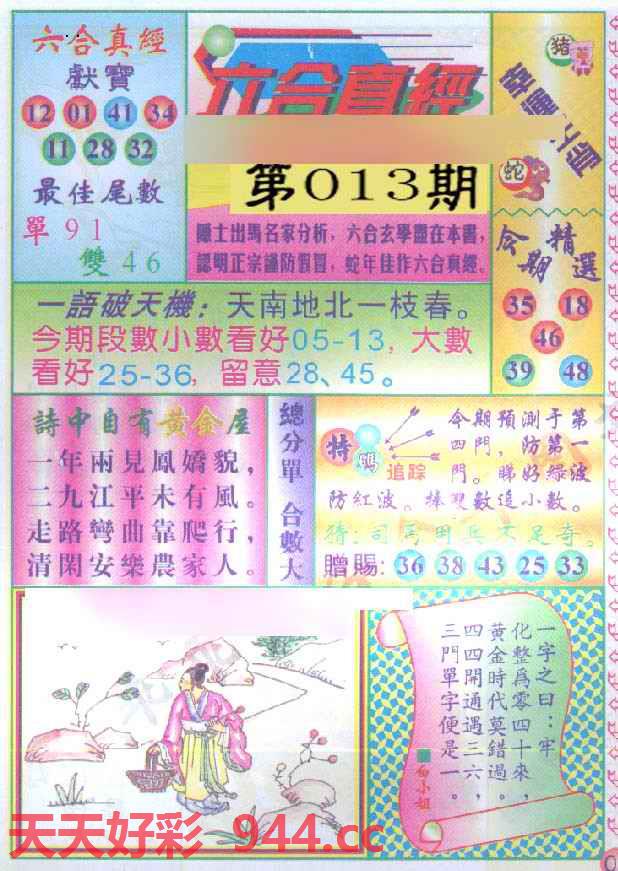 六合真經
獻寶
12 01 41 34
11 28 32
最佳尾數
單 91
雙 46
六合真經
第013期
隱士出馬名家分析，六合玄學盡在本書，
認明正宗謹防假冒，蛇年佳作六合真經。
豬
蛇
今期精選
35 18
46
39 48
一語破天機：天南地北一枝春。
今期段數小數看好05-13，大數
看好25-36，留意28、45。
詩中自有黃金屋
一年兩見鳳嬌貌，
二九江平未有風。
走路彎曲靠爬行，
清閑安樂農家人。
總分單 合數大
特碼
追踪
今期預測于第
四門，防第一
門。睇好绿波
防紅波。捧雙數追小數。
猜：司馬田兵不足奇。
贈賜：36 38 43 25 33
一字之曰：牢
化整爲零四十來，
黃金時代莫錯過，
四四開通遇三六，
三門單字便是一。
白小姐
天天好彩 944.cc